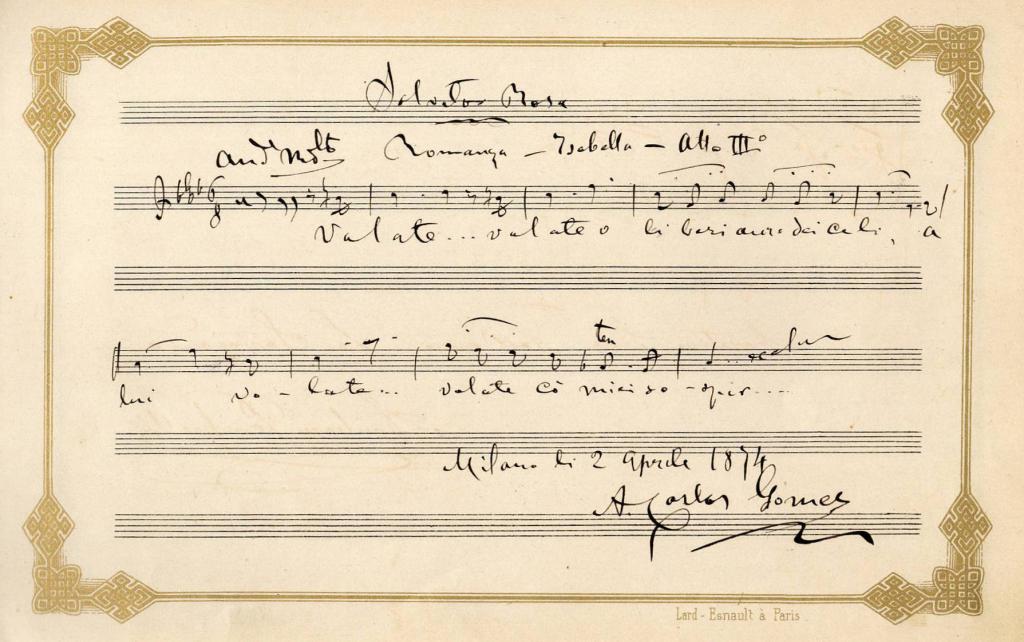 Salvator Rosa
And.e Mol.to Romanza - Isabella - Atto IIIº
Volate... volate o li beri aure dei celi, a
ten
lui vo - late... volate cò miei so - spir....
Milano li 2 Aprile 1874
A. Carlos Gomes
Lard - Esnault à Paris